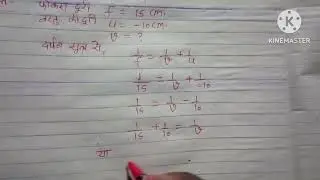 फोकस दूरी f = 15 cm.
वस्तु की दूरी u = -10 cm.
v = ?
दर्पण सूत्र से,
1/f = 1/v + 1/u
1/15 = 1/v + 1/-10
1/15 = 1/v - 1/10
1/15 + 1/10 = 1/v
या
KINEMASTER